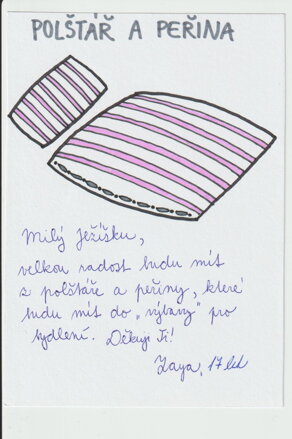 POLŠTÁŘ A PEŘINA
Milý Ježíšku,
velkou radost budu mít
z polštáře a peřiny, které
budu mít do „výbavy" pro
bydlení. Děkuji Ti!
Zaya, 17 let